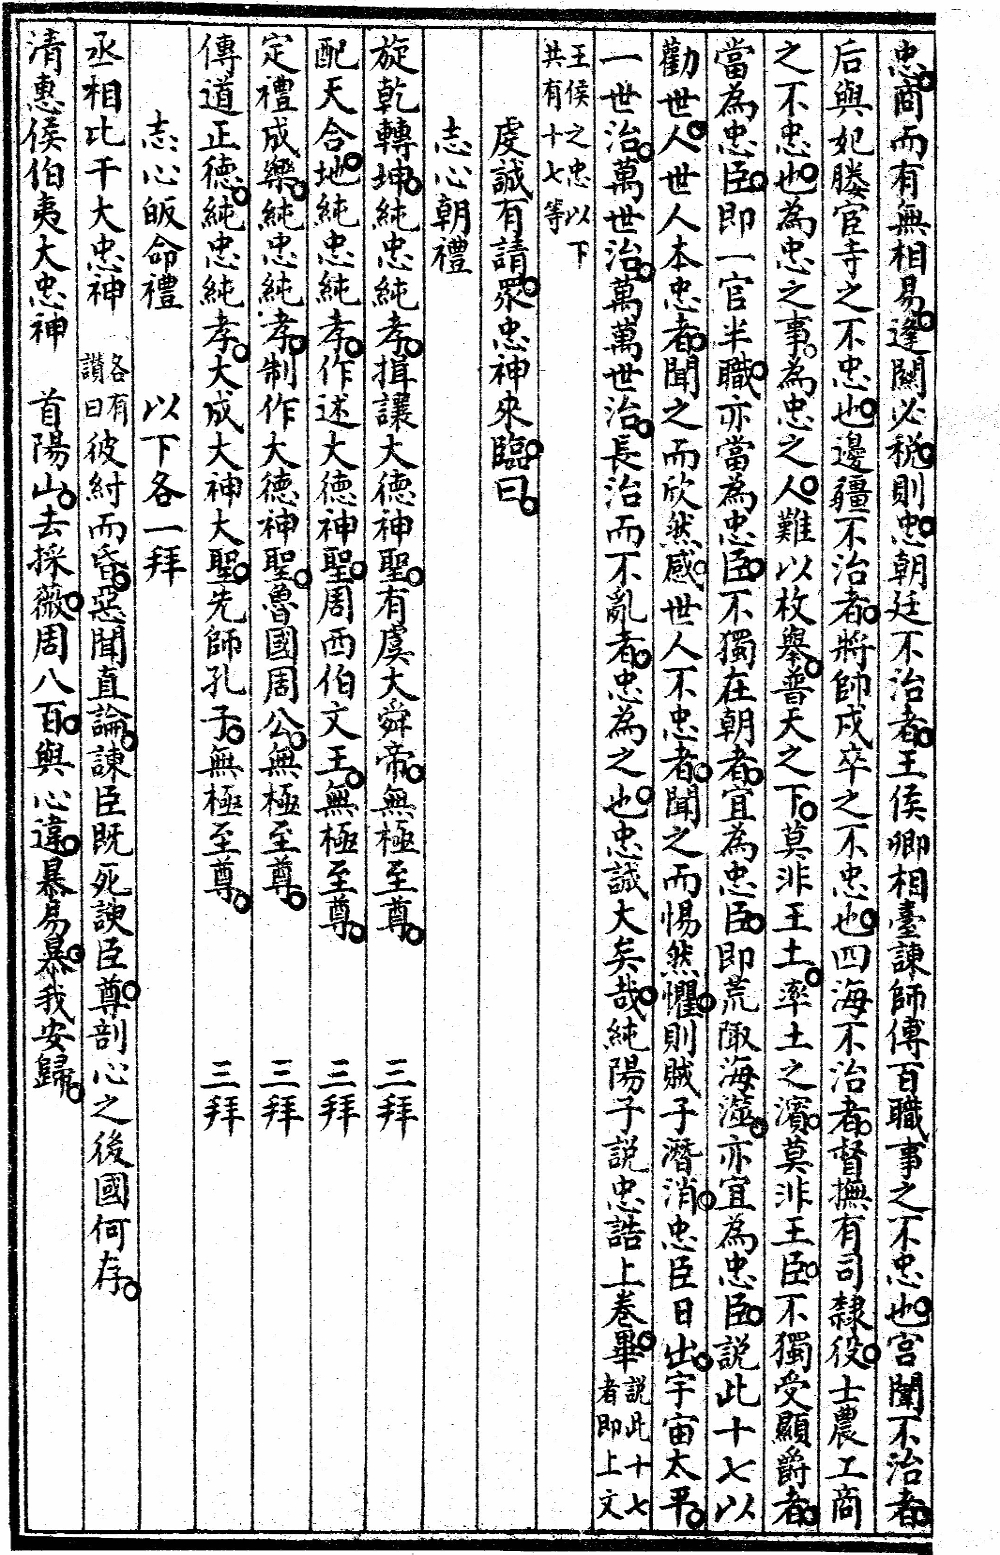 忠商而有無相易逢關必税則忠朝廷不治者王侯卿相臺諫師傅百職事之不忠也宫闈不治者
后與妃媵宦寺之不忠也邊疆不治者將帥戍卒之不忠也四海不治者督撫有司隸役士農工商
之不忠也為忠之事為忠之人難以枚舉普天之下莫非王土率土之濱莫非王臣不獨受顯爵者
當為忠臣即一官半職亦當為忠臣不獨在朝者宜為忠臣即荒陬海澨亦宜為忠臣説此十七以
勸世人世人本忠者聞之而欣然感世人不忠者聞之而惕然懼則賊子潛消忠臣日出宇宙太平
一世治萬世治萬萬世治長治而不亂者忠為之也忠誠大矣哉純陽子説忠誥上卷畢説此十七者即上文
王侯之忠以下共有十七等
虔誠有請眾忠神來臨曰
志心朝禮
旋乾轉坤純忠純孝揖讓大德神聖有虞大舜帝無極至尊 三拜
配天合地純忠純孝作述大德神聖周西伯文王無極至尊 三拜
定禮成樂純忠純孝制作大德神聖魯國周公無極至尊 三拜
傳道正德純忠純孝大成大神大聖先師孔子無極至尊 三拜
志心皈命禮 以下各一拜
丞相比干大忠神 各有讃曰彼紂而昏惡聞直論諫臣既死諛臣尊剖心之後國何存
清惠侯伯夷大忠神 首陽山去採薇周八百與心違暴易暴我安歸